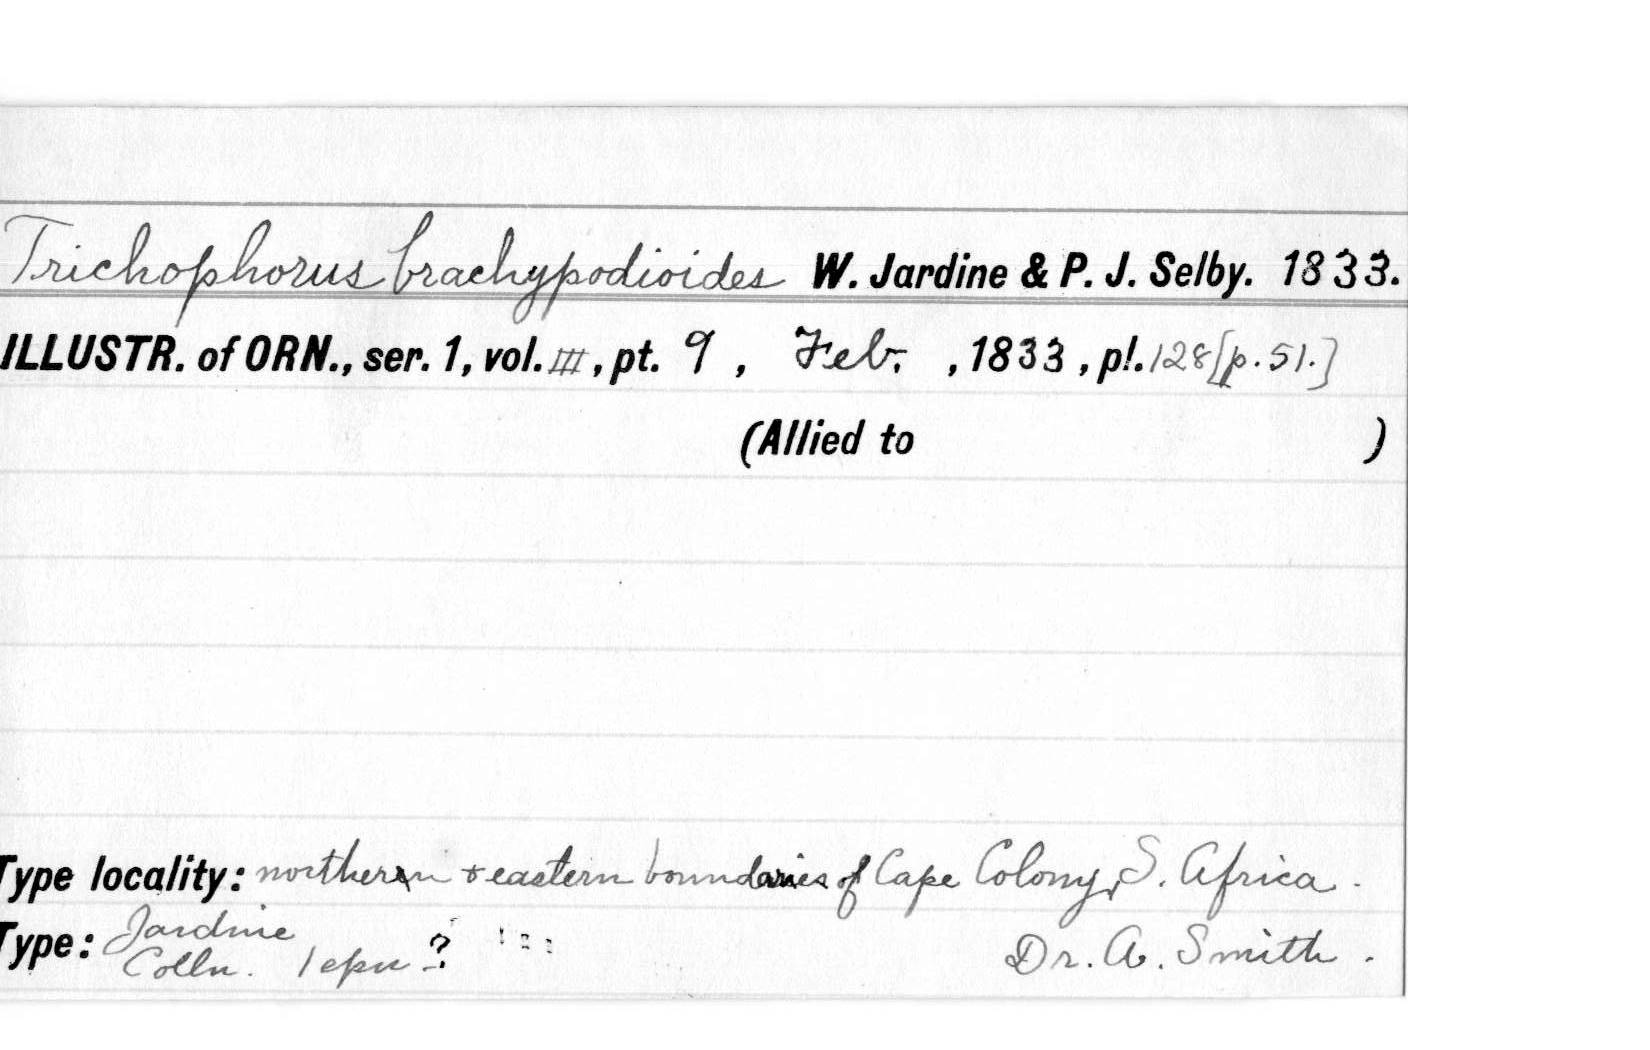 Trichophorus brachypodioides W. Jardine & P. J. Selby. 1833.
ILLUSTR. of ORN., ser. 1, vol. III, pt. 9, Feb., 1833, pl. 128 [p. 51.]
(Allied to )
Type locality: northern + eastern boundaries of Cape Colony, S. Africa.
Type: Jardine
Colln. 1 spn ? Dr. A. Smith.